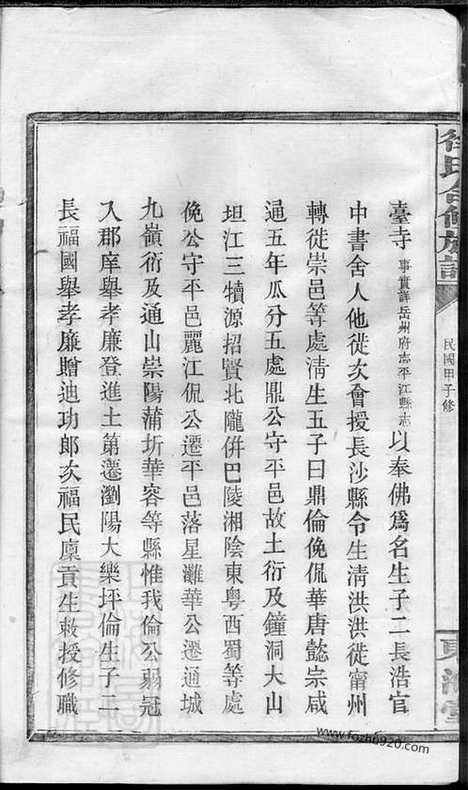 徐氏合修族譜
民國甲子修
東海堂
臺寺事實詳岳州府志平江縣志以奉佛爲名生子二長浩官
中書舍人他徙次會授長沙縣令生淸洪洪徙甯州
轉徙崇邑等處淸生五子曰鼎倫俛侃華唐懿宗咸
通五年瓜分五處鼎公守平邑故土衍及鐘洞大山
坦江三犢源招賢北隴併巴陵湘陰東粤西蜀等處
俛公守平邑麗江侃公遷平邑落星灘華公遷通城
九嶺衍及通山崇陽蒲圻華容等縣惟我倫公弱冠
入郡庠舉孝廉登進士第遷瀏陽大樂坪倫生子二
長福國舉孝廉贈迪功郎次福民廩貢生敕授修職
www.fozhu920.com